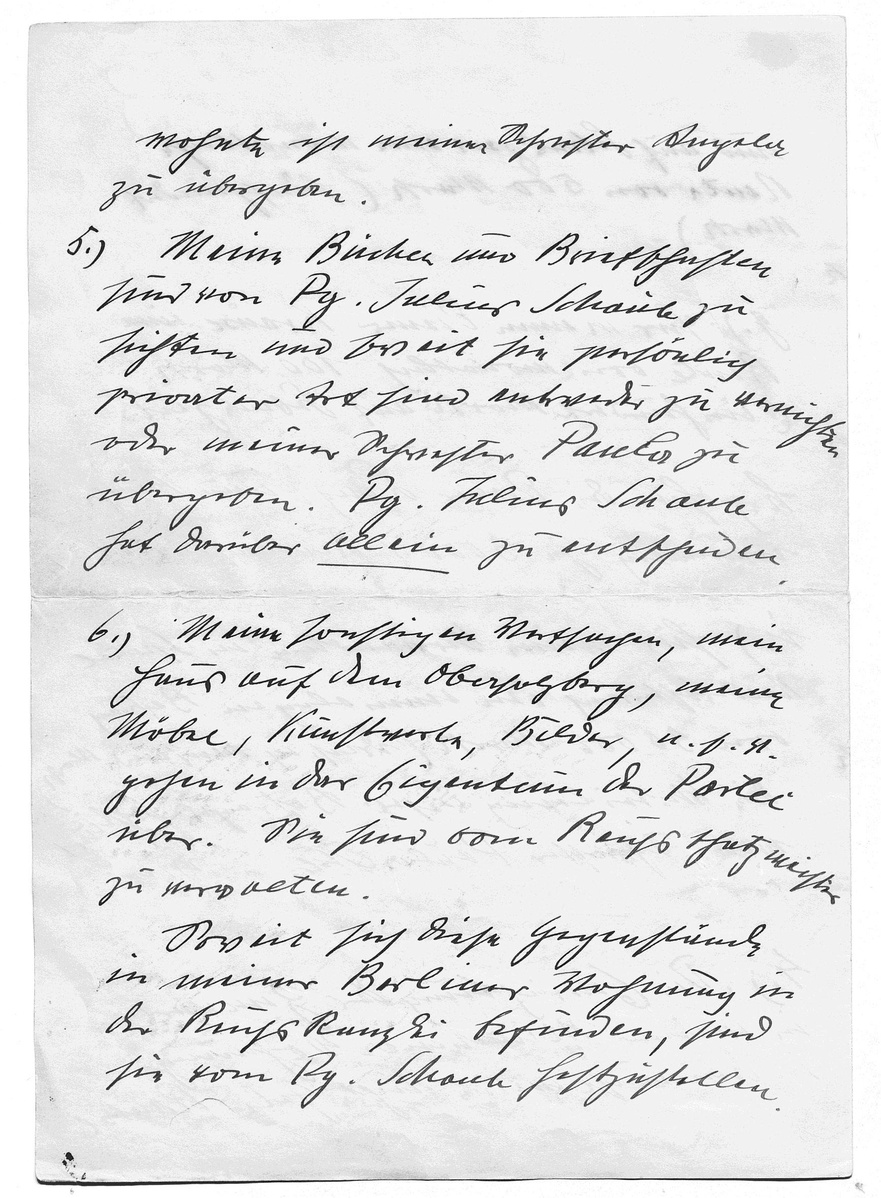 wohnte ist meiner Schwester Angela
zu übergeben.
5.) Meine Bücher und Briefschaften
sind von Pg. Julius Schaub zu
sichten und soweit sie persönlich
privater Art sind entweder zu vernichten
oder meiner Schwester Paula zu
übergeben. Pg. Julius Schaub
hat darüber allein zu entscheiden.
6.) Meine sonstigen Wertsachen, mein
Haus auf dem Obersalzberg, meine
Möbel, Kunstwerke, Bilder, u.s.w.
gehen in das Eigentum der Partei
über. Sie sind vom Reichsschatzmeister
zu verwalten.
Soweit sich diese Gegenstände
in meiner Berliner Wohnung in
der Reichskanzlei befinden, sind
sie vom Pg. Schaub festzustellen.